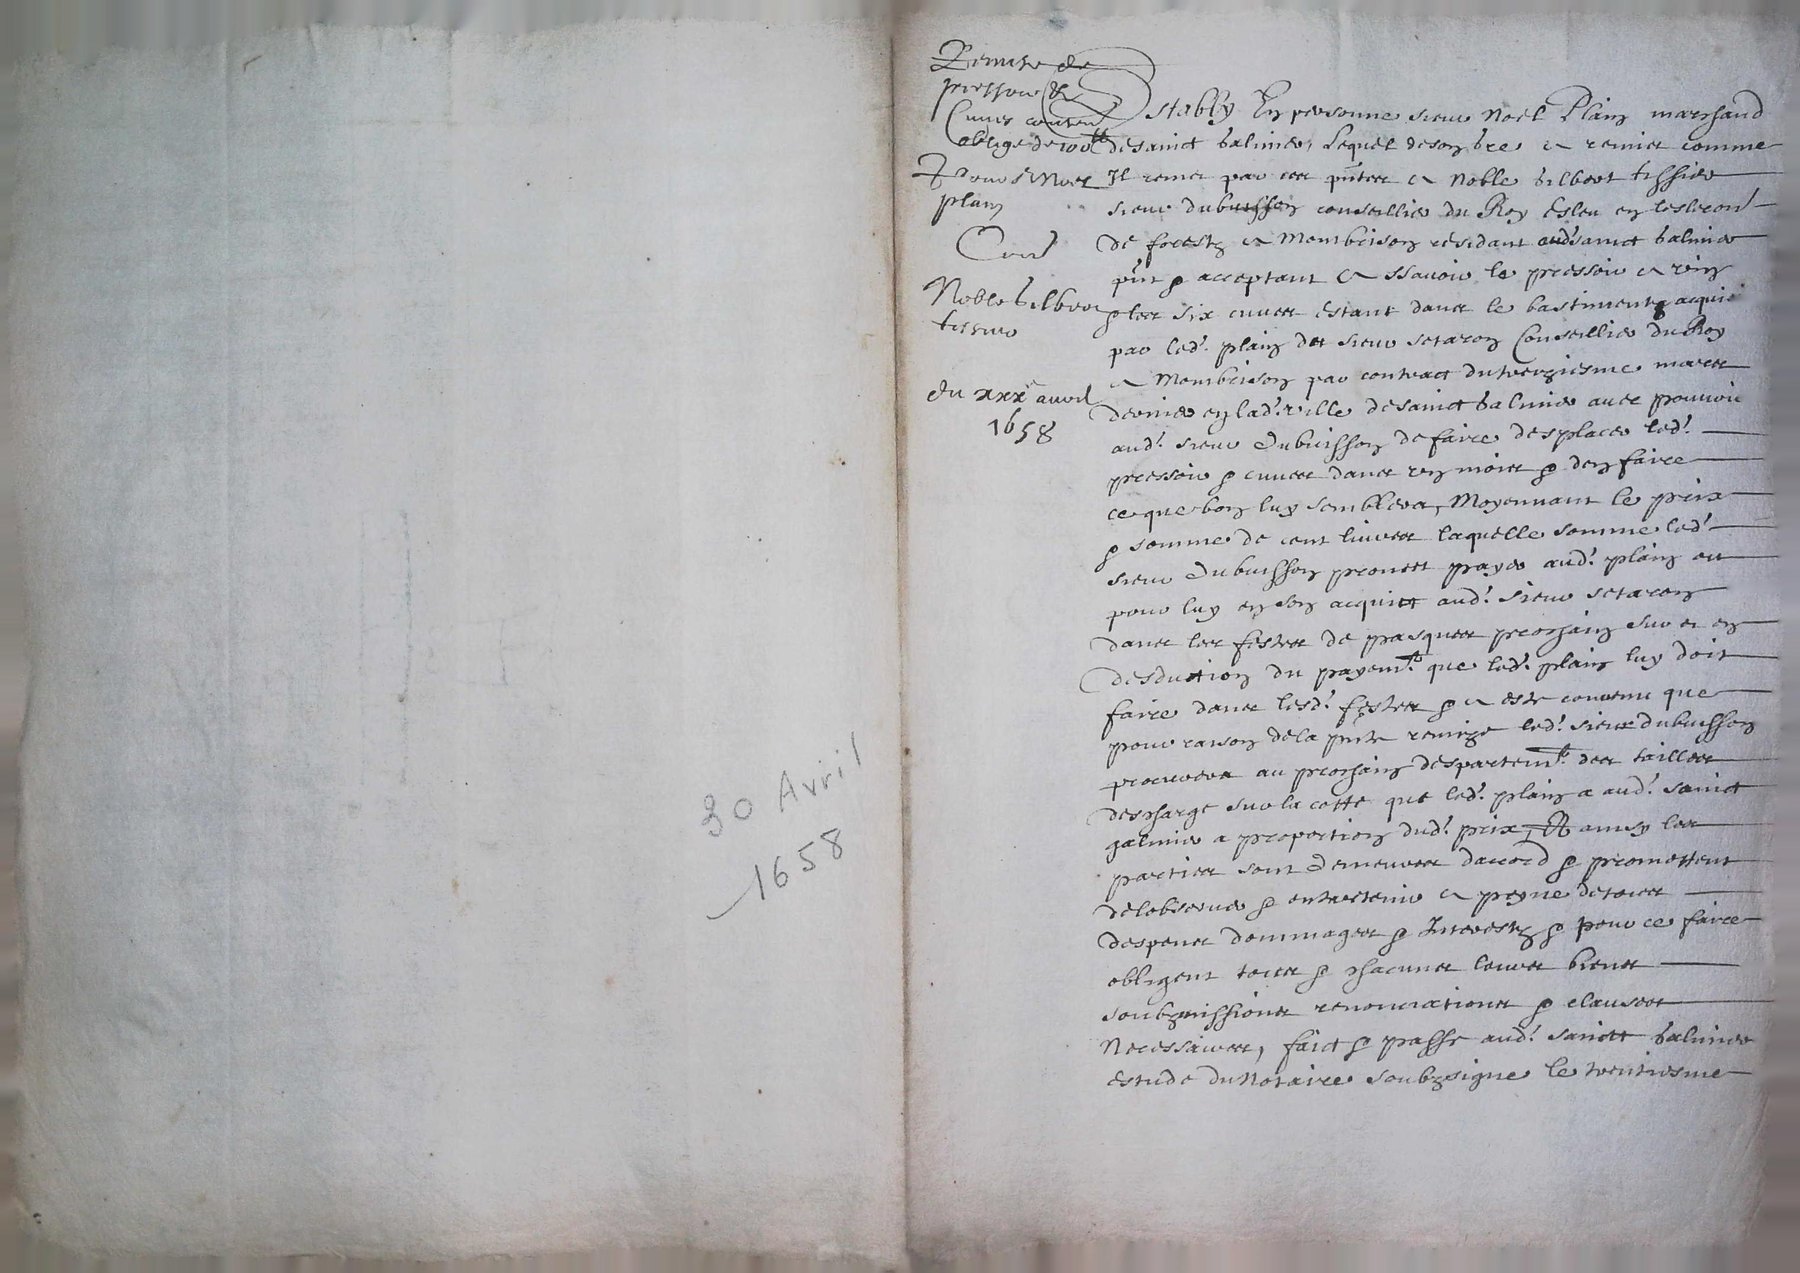 30 Avril
1658
Remise de
pressoir &
Cuves contenant
obligé de 100 lt
pour Sr Noel
plain
Cont
Noble Gilbert
tissier
du xxxe avril
1658
Estably En personne sieur Noel Plain marchand
de sainct Galmier, Lequel de son gre a remict comme
Il remet par ces pntes a Noble Gilbert tissier
sieur dubuisson conseillier du Roy Esleu en leslection
de forestz a Montbrison residant aud. sainct Galmier
pnt & acceptant a ssavoir le pressoir a vin
& les six cuves estant dans le bastiment acquis
par led. plain du sieur setaron Conseillier du Roy
a Montbrison par contract du treziesme mars
dernier en lad. ville de sainct Galmier avec pouvoir
aud. sieur dubuisson de faire desplacer led.
pressoir & cuves dans ung mois & den faire
ce que bon luy semblera, Moyennant le prix
& somme de cent livres laquelle somme led.
sieur dubuisson promet payer aud. plain ou
pour luy en son acquict aud. sieur setaron
dans les festes de pasques prochain sur et en
desduction du payemt. que led. plain luy doit
faire dans lesd. festes & a este convenu que
pour raison de la pnte remize led. sieur dubuisson
procurera au prochain despartemt. des tailles
descharge sur la cotte que led. plain a aud. sainct
galmier a proportion dud. prix, Et ainsy les
parties sont demeurees daccord & promettent
de lobserver & entretenir a peyne de tous
despens dommages & Interestz & pour ce faire
obligent tous & chacuns leurs biens
soubzmissions renonciations & clauses
Necessaires, faict & passe aud. sainct Galmier
estude du Notaire soubzsigne le trentiesme